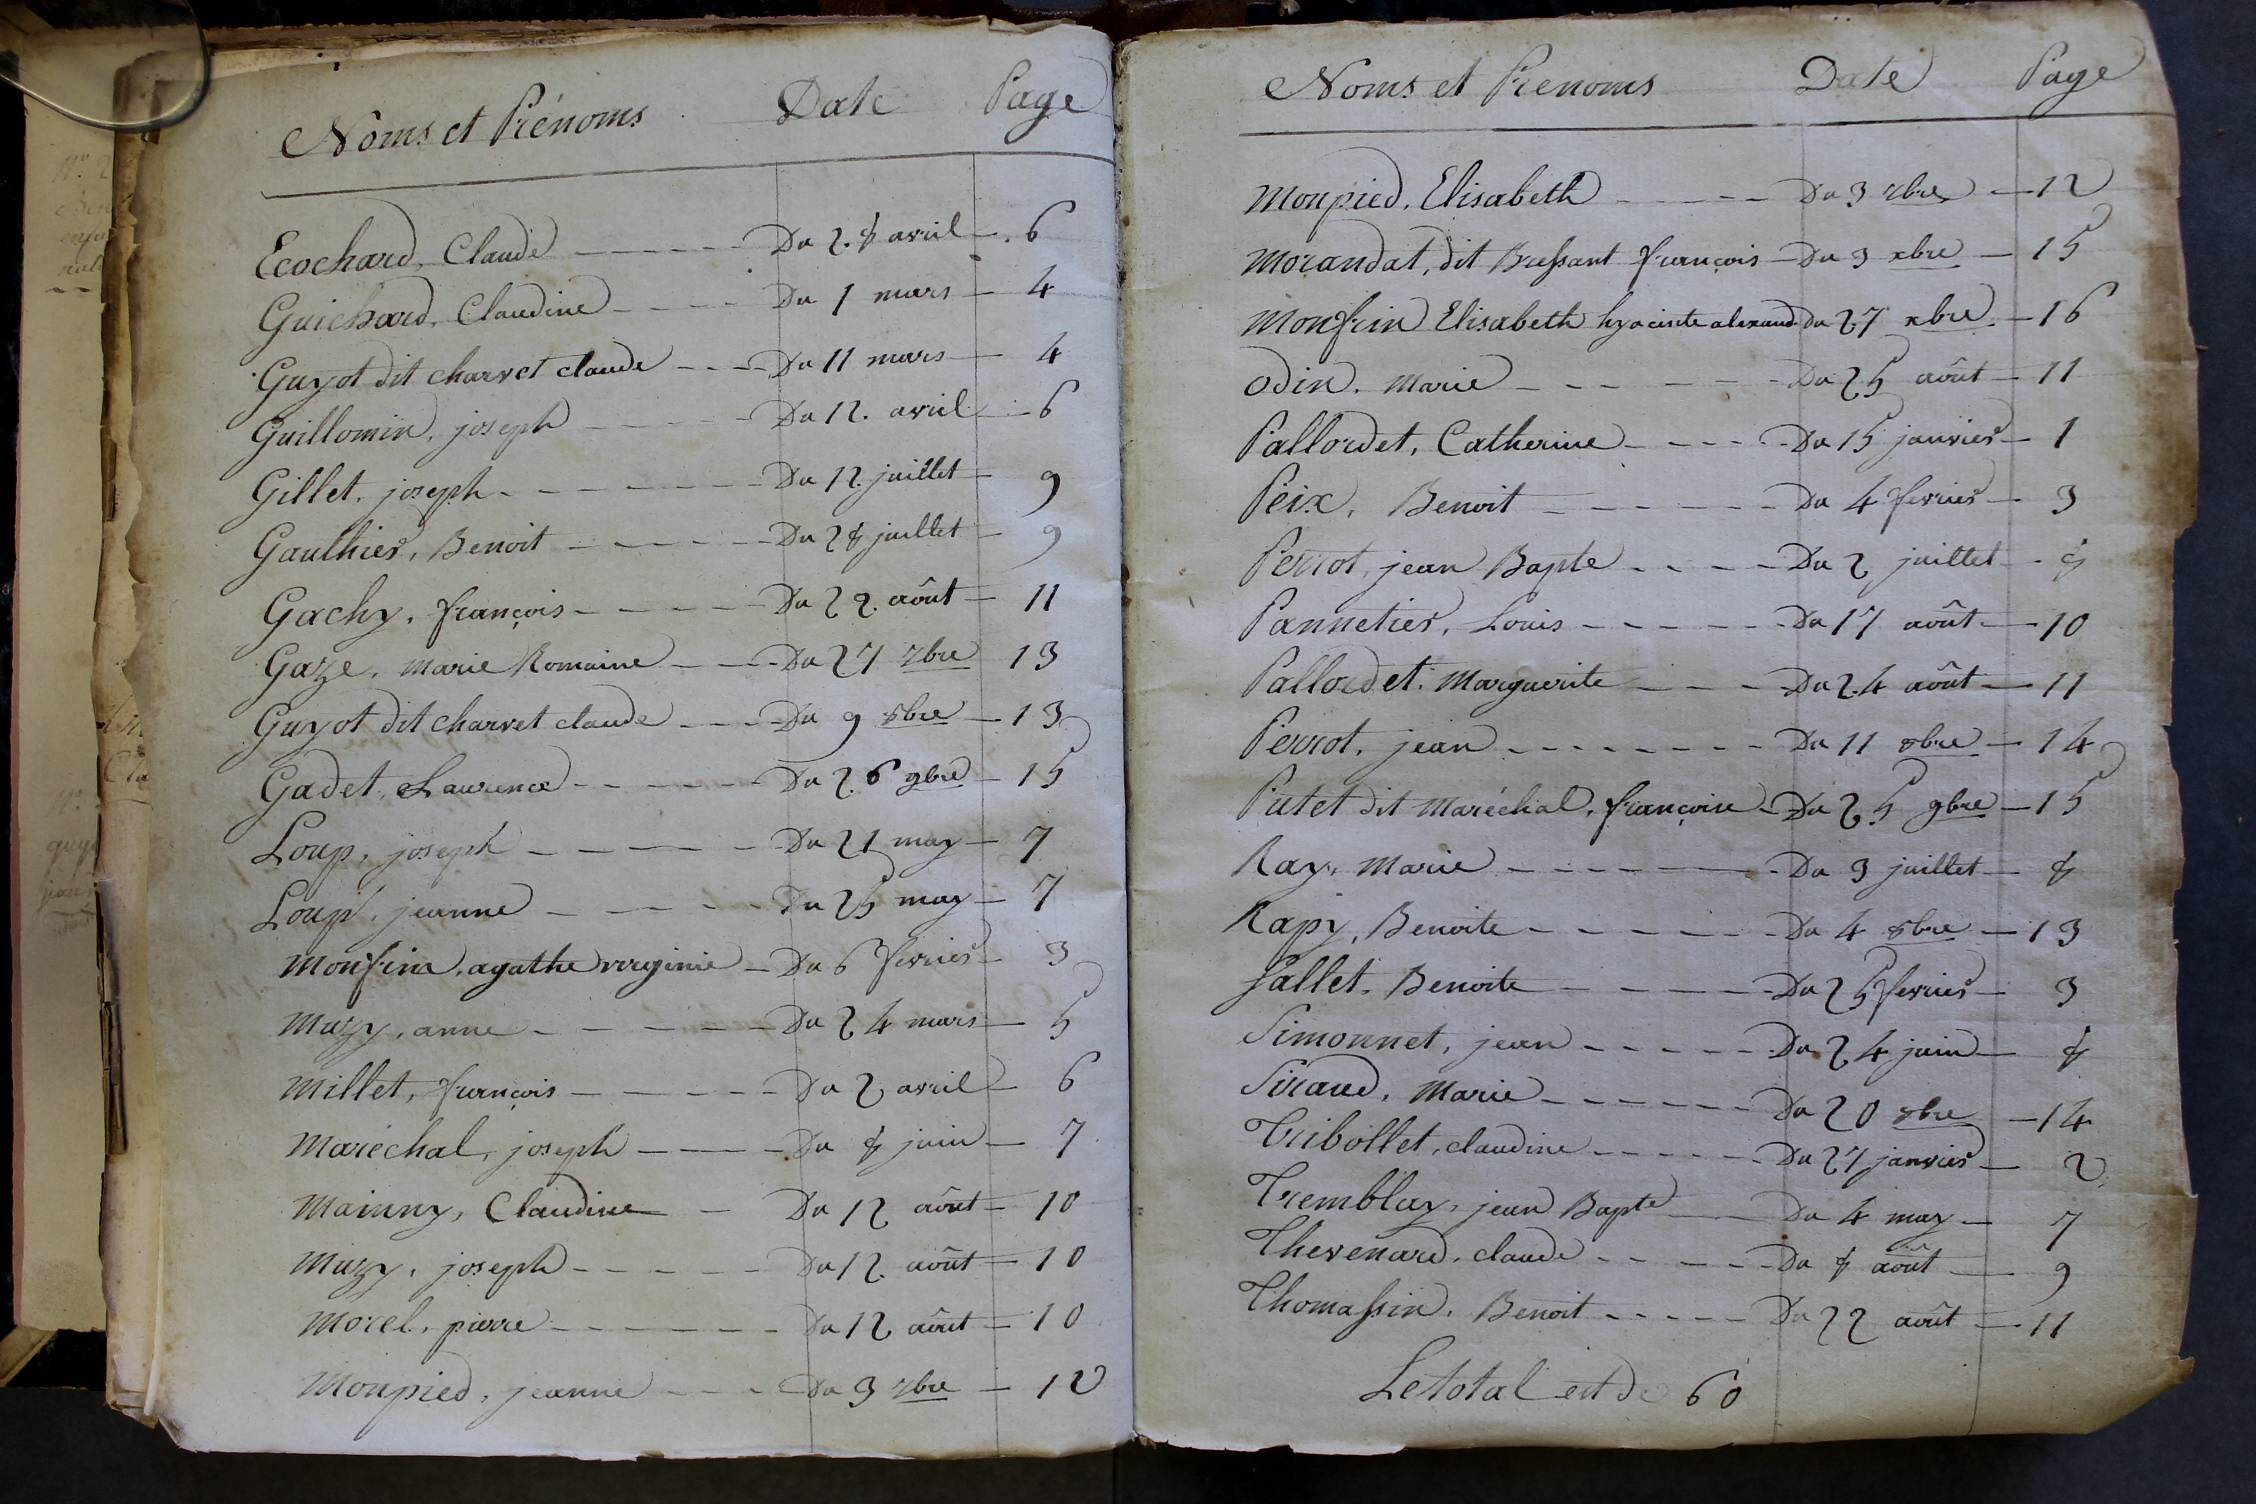 Noms et Prénoms Date Page
Ecochard, Claude Du 28 avril 6
Guichard, Claudine Du 1 mars 4
Guyot dit charvet claude Du 11 mars 4
Guillomin, joseph Du 12. avril 6
Gillet, joseph Du 12. juillet 9
Gaulhier, Benoit Du 28 juillet 9
Gachy, françois Du 22. août 11
Gaze, marie Romaine Du 27 7bre 13
Guyot dit charvet claude Du 9 8bre 13
Gadet, Laurence Du 26 9bre 15
Loup, joseph Du 21 may 7
Loup, jeanne Du 25 may 7
Monfrin, agathe virginie Du 6 fevrier 3
Muzy, anne Du 24 mars 5
Millet, françois Du 2 avril 6
Maréchal, joseph Du 8 juin 7
Mainny, Claudine Du 12 août 10
Muzy, joseph Du 12. août 10
Morel, pierre Du 12 août 10
Monpied, jeanne Du 3 7bre 12
Noms et Prenoms Date Page
Monpied, Elisabeth Du 3 7bre 12
Morandat, dit Bressant françois Du 3 xbre 15
Monfrin Elisabeth hyacinte alexand. du 27 xbre 16
Odin, marie Du 25 août 11
Pallordet, Catherine Du 15 janvier 1
Peix, Benoit Du 4 fevrier 3
Perrot, jean Bapte Du 2 juillet 8
Pannetier, Louis Du 17 août 10
Pallordet, Marguerite Du 24 août 11
Perrot, jean Du 11 8bre 14
Putet dit maréchal, françoise Du 25 9bre 15
Ray, Marie Du 3 juillet 8
Rapy, Benoite Du 4 8bre 13
Sallet, Benoite Du 25 fevrier 3
Simonnet, jean Du 24 juin 8
Siraud, Marie Du 20 8bre 14
Tribollet, claudine Du 27 janvier 2
Tremblay, jean Bapte Du 4 may 7
Thevenard, claude Du 8 août 9
Thomassin, Benoit Du 22 août 11
Le total est de 60